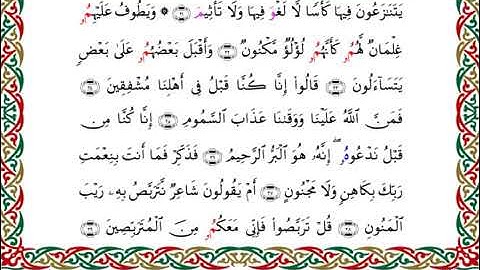 يَتَنَٰزَعُونَ فِيهَا كَأْسًا لَّا لَغْوَ فِيهَا وَلَا تَأْثِيمَ ٢١ ۞ وَيَطُوفُ عَلَيْهِمُۥ
غِلْمَانٌ لَّهُمُۥ كَأَنَّهُمُۥ لُؤْلُؤٌ مَّكْنُونٌ ٢٢ وَأَقْبَلَ بَعْضُهُمُۥ عَلَىٰ بَعْضٍ
يَتَسَآءَلُونَ ٢٣ قَالُوٓا۟ إِنَّا كُنَّا قَبْلُ فِىٓ أَهْلِنَا مُشْفِقِينَ ٢٤
فَمَنَّ ٱللَّهُ عَلَيْنَا وَوَقَىٰنَا عَذَابَ ٱلسَّمُومِ ٢٥ إِنَّا كُنَّا مِن
قَبْلُ نَدْعُوهُۥٓ إِنَّهُۥ هُوَ ٱلْبَرُّ ٱلرَّحِيمُ ٢٦ فَذَكِّرْ فَمَآ أَنتَ بِنِعْمَتِ
رَبِّكَ بِكَاهِنٍ وَلَا مَجْنُونٍ ٢٧ أَمْ يَقُولُونَ شَاعِرٌ نَّتَرَبَّصُ بِهِۦ رَيْبَ
ٱلْمَنُونِ ٢٨ قُلْ تَرَبَّصُوا۟ فَإِنِّى مَعَكُمُۥ مِنَ ٱلْمُتَرَبِّصِينَ ٢٩